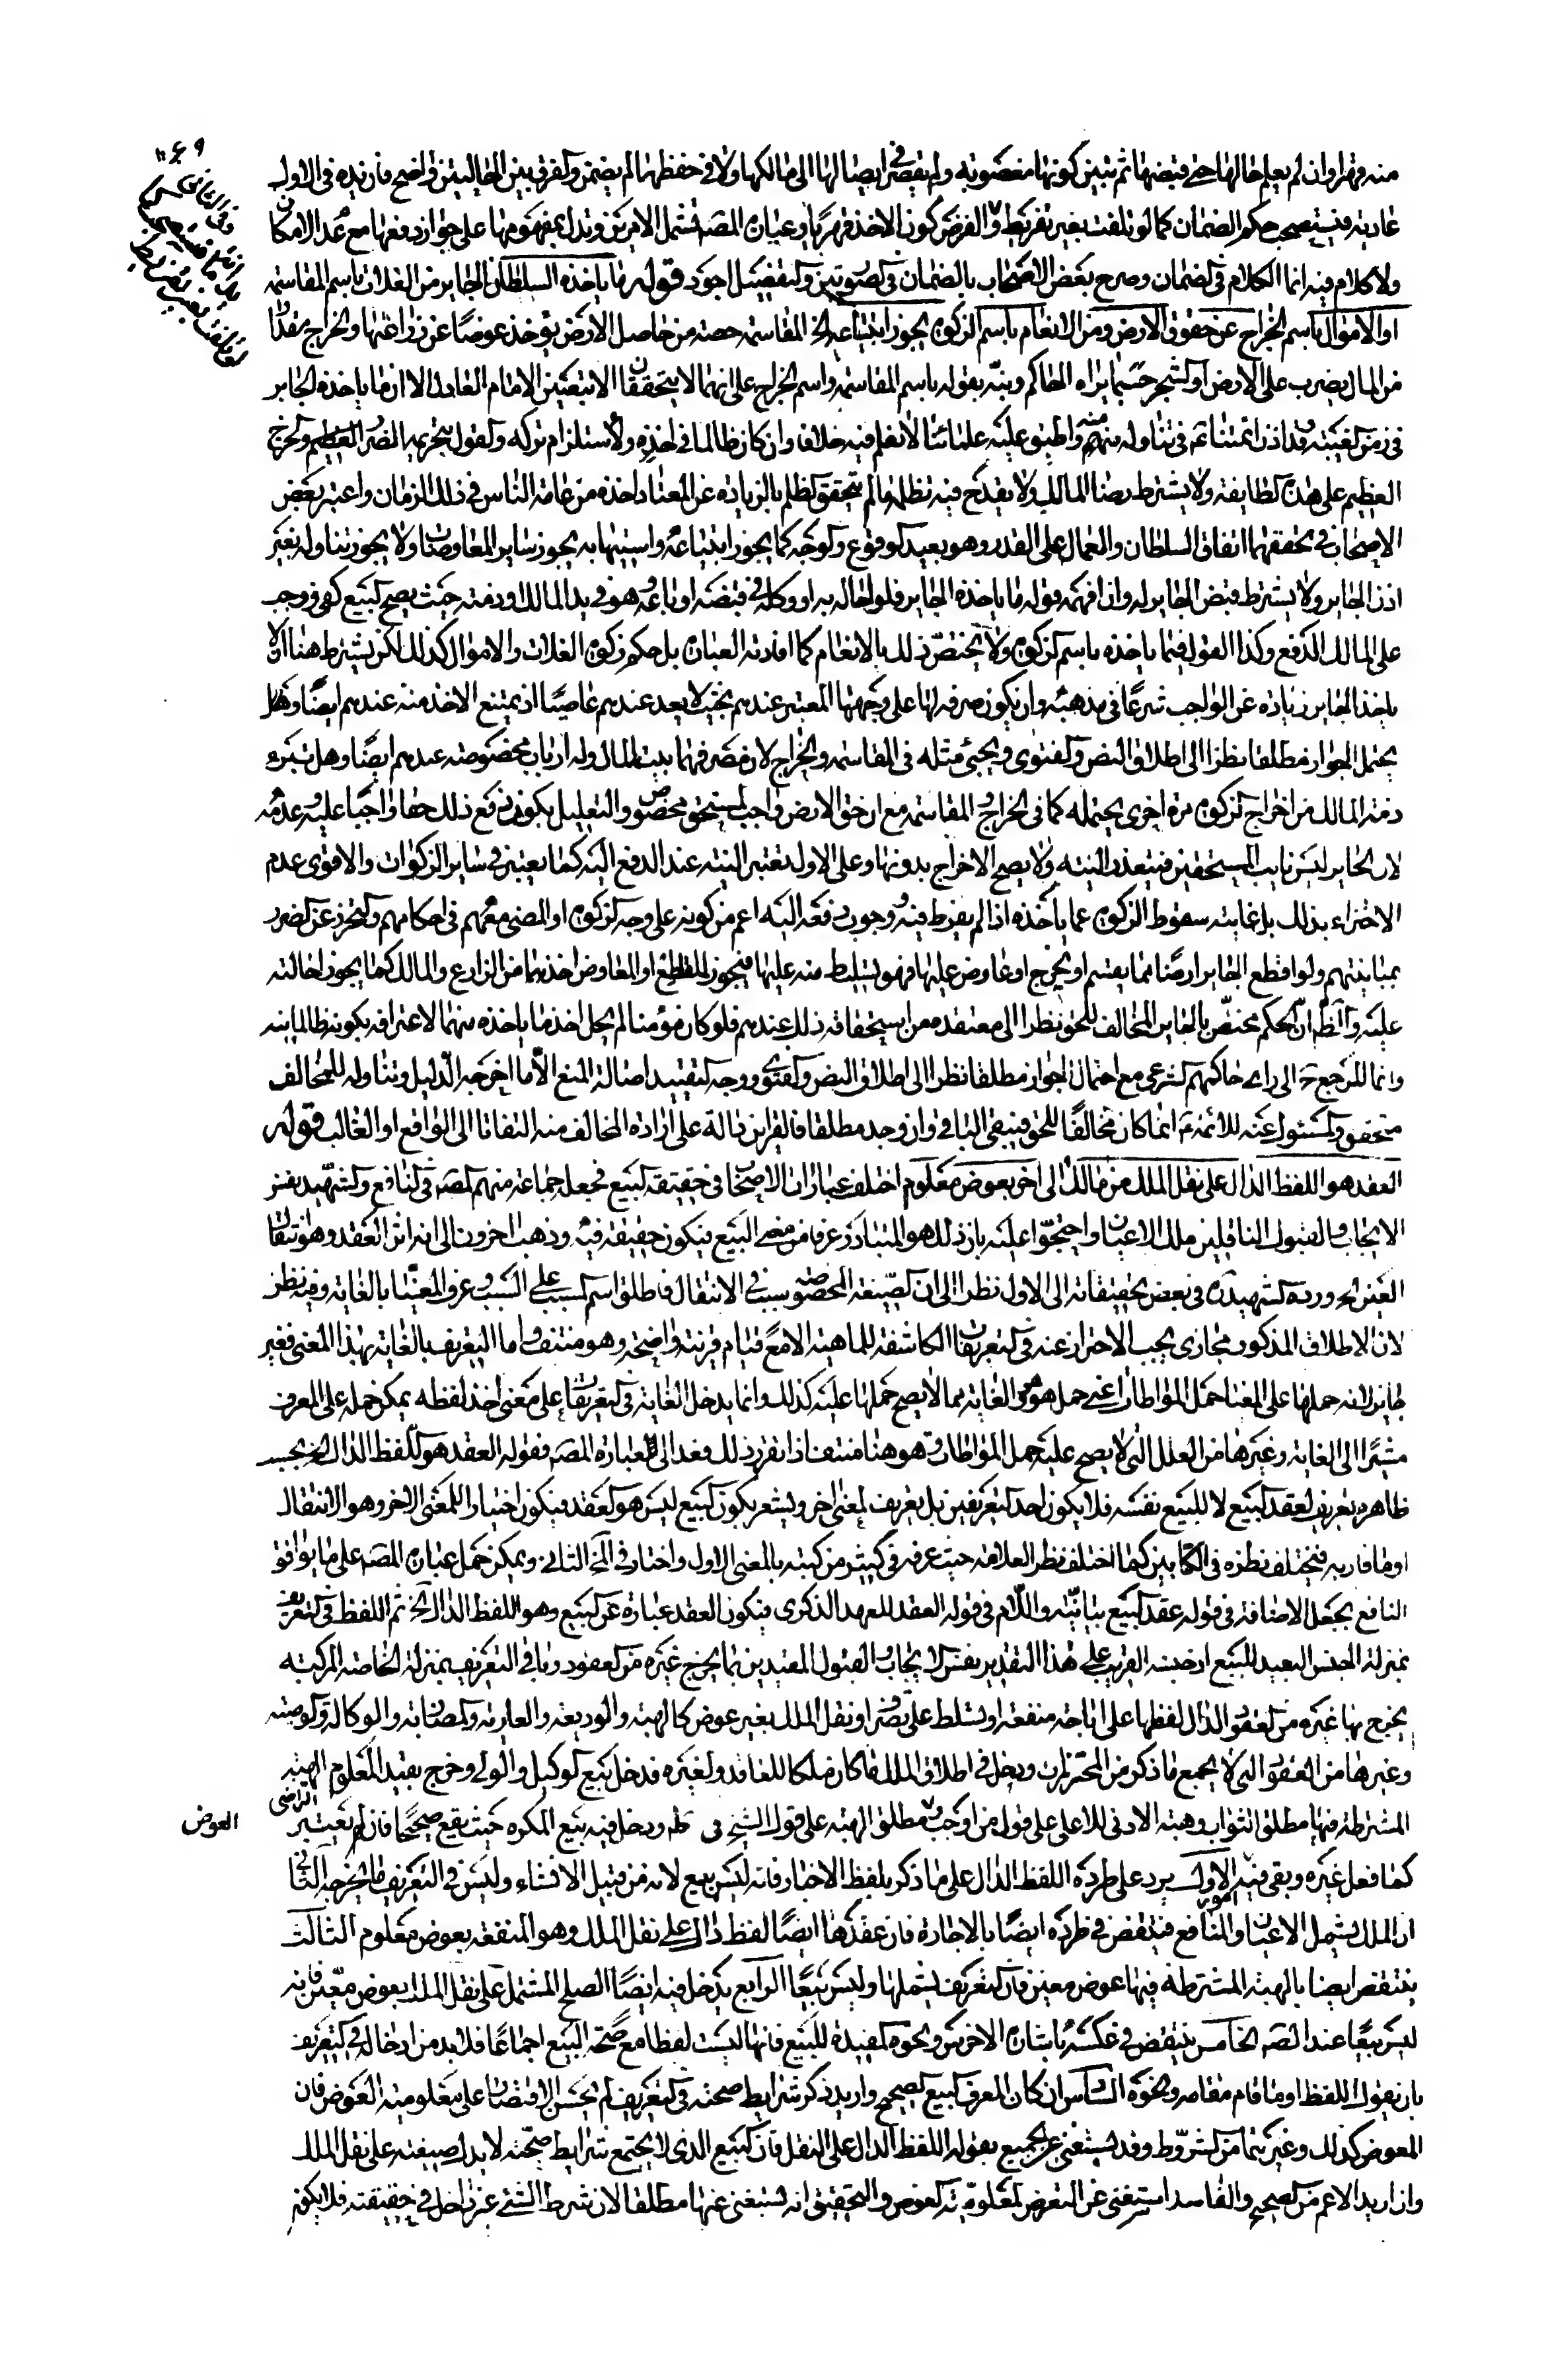 منه قهرا وان لم يعلم حالها حتى قبضها ثم تبين كونها مغصوبة ولم يقصر في ايصالها الى مالكها ولا في حفظها لم يضمن والفرق بين الحالتين واضح فان يده في الاول
عادية فيستصحب حكم الضمان كما لو تلفت بغير تفريط والفرض كون الاخذ قهريا وعبارة المصـ تشمل الامرين وتدل بمفهومها على جواز دفعها مع عدم الامكان
ولا كلام فيه انما الكلام في الضمان وصرح بعض الاصحاب بالضمان في الصورتين والتفصيل اجود قوله ما ياخذه السلطان الجاير من الغلات باسم المقاسمة
او الاموال باسم الخراج عن حقوق الارض ومن الانعام باسم الزكوة يجوز ابتياعه الخ المقاسمة حصة من حاصل الارض يؤخذ عوضا عن زراعتها والخراج مقدار
من المال يضرب على الارض او الشجر حسبما يراه الحاكم ونبه بقوله باسم المقاسمة واسم الخراج على انهما لا يتحققان الا بتعيين الامام العادل الا ان ما ياخذه الجاير
في زمن الغيبة قد اذن ائمتنا ع في تناوله منهم واطبق عليه علماؤنا لا نعلم فيه خلافا وان كان ظالما في اخذه ولاستلزام تركه والقول بتحريمه الضرر العظيم والحرج
العظيم على هذه الطايفة ولا يشترط رضا المالك ولا يقدح فيه تظلمه ما لم يتحقق الظلم بالزيادة عن المعتاد اخذه من عامة الناس في ذلك الزمان واعتبر بعض
الاصحاب في تحققهما اتفاق السلطان والعمال على القدر وهو بعيد الوقوع والوجه كما يجوز ابتياعه واستيهابه يجوز ساير المعاوضات ولا يجوز تناوله بغير
اذن الجاير ولا يشترط قبض الجاير له وان افهمه قوله ما ياخذه الجاير فلو احاله به او وكله في قبضه او باعه وهو في يد المالك او ذمته حيث يصح البيع كفى ووجب
على المالك الدفع وكذا القول فيما ياخذه باسم الزكوة ولا يختص ذلك بالانعام كما افادته العبارة بل حكم زكوة الغلات والاموال كذلك لكن يشترط هنا ان لا
ياخذ الجاير زيادة عن الواجب شرعا في مذهبه وان يكون صرفه لها على وجهها المعتبر عندهم بحيث لا يعد عندهم عاصيا اذ يمتنع الاخذ منه عندهم ايضا
يحتمل الجواز مطلقا نظرا الى اطلاق النص والفتوى ويجيء مثله في المقاسمة والخراج لان مصرفهما بيت المال وله ارباب مخصوصة عندهم ايضا وهل تبرء
ذمة المالك من اخراج الزكوة مرة اخرى يحتمله كما في الخراج والمقاسمة مع ان حق الارض واجب لمستحق مخصوص والتعليل بكون دفع ذلك حقا واجبا عليه وعدمه
لان الجاير ليس نايب المستحقين فيتعذر النية ولا يصح الاخراج بدونها وعلى الاول تعتبر النية عند الدفع اليه كما يعتبر في ساير الزكوات والاقوى عدم
الاجتزاء بذلك بل غايته سقوط الزكوة عما ياخذه اذا لم يفرط فيه ووجوب دفعه اليه اعم من كونه على وجه الزكوة او المضي معهم في احكامهم والتحرز عن الضرر
بمباينتهم ولو اقطع الجاير ارضا مما يقسم او يخرج او عاوض عليها فهو تسليط منه عليها فيجوز للمقطع او المعاوض اخذهما من الزارع والمالك كما يجوز احالته
عليه والظ ان الحكم مختص بالجاير المخالف للحق نظرا الى معتقده من استحقاقه ذلك عندهم فلو كان مؤمنا لم يحل اخذ ما ياخذه منهما لاعترافه بكونه ظالما فيه
وانما المرجع ح الى راي حاكمهم الشرعي مع احتمال الجواز مطلقا نظرا الى اطلاق النص والفتوى ووجه التقييد اصالة المنع الا ما اخرجه الدليل وتناوله للمخالف
متحقق والمسئول عنه للائمة ع انما كان مخالفا للحق فيبقى الباقي وان وجد مطلقا فالقراين دالة على ارادة المخالف منه التفاتا الى الواقع او الغالب قوله
العقد هو اللفظ الدال على نقل الملك من مالك الى اخر بعوض معلوم اختلف عبارات الاصحاب في حقيقة البيع فجعله جماعة منهم المصـ في النافع والشهيد نفس
الايجاب والقبول الناقلين ملك الاعيان واحتجوا عليه بان ذلك هو المتبادر عرفا من معنى البيع فيكون حقيقة فيه وذهب اخرون الى انه اثر العقد وهو انتقال
العين الخ ورده الشهيد ره في بعض تحقيقاته الى الاول نظرا الى ان الصيغة المخصوصة سبب في الانتقال فاطلق اسم المسبب على السبب وعرف المغيا بالغاية وفيه نظر
لان الاطلاق المذكور مجازي يجب الاحتراز عنه في التعريفات الكاشفة للماهية الا مع قيام قرينة واضحة وهو منتف واما التعريف بالغاية بهذا المعنى فغير
جايز لانه حملها على المغيا حمل المواطاة اعني حمل هو هو والغاية مما لا يصح حملها عليه كذلك وانما يدخل الغاية في التعريفات على معنى اخذ لفظه يمكن حمله على المعرف
مشيرا الى الغاية وغيرها من العلل التي لا يصح عليه حمل المواطاة وهو هنا منتف اذا تقرر ذلك فنعد الى عبارة المصـ فقوله العقد هو اللفظ الدال الخ بحسب
ظاهره تعريف لعقد البيع لا للبيع نفسه فلا يكون احد التعريفين بل تعريف لمعنى اخر ويشعر بكون البيع ليس هو العقد فيكون اختيارا للمعنى الاخر وهو الانتقال
او ما قاربه فيختلف نظره في الكتابين كما اختلف نظر العلامة حيث عرفه في كثير من كتبه بالمعنى الاول واختار في الخ الثاني ويمكن حمل عبارة المصـ على ما يوافق
النافع بجعل الاضافة في قوله عقد البيع بيانية واللام في قوله العقد للعهد الذكرى فيكون العقد عبارة عن البيع وهو اللفظ الدال الخ ثم اللفظ في التعريف
بمنزلة الجنس البعيد للبيع اذ جنسه القريب على هذا التقدير نفس الايجاب والقبول المقيدين بما يخرج غيره من العقود وباقي التعريف بمنزلة الخاصة المركبة
يخرج بها غيره من العقود الدال لفظها على اباحة منفعة او تسلط على تصرف او نقل الملك بغير عوض كالهبة والوديعة والعارية والمضاربة والوكالة والوصية
وغيرها من العقود التي لا يجمع ما ذكر من المحترزات ويدخل في اطلاق الملك ما كان ملكا للعاقد ولغيره فدخل بيع الوكيل والولي وخرج بقيد المعلوم الهبة
المشترطة فيها مطلق الثواب وهبة الادنى للاعلى على قول من اوجب مطلق الهبة على قول الشيخ في ط ودخل فيه بيع المكره حيث يقع صحيحا فان لم يعتبر التراضي
العوض
كما فعل غيره وبقي فيه امور الاول يرد على طرده اللفظ الدال على ما ذكر بلفظ الاخبار فانه ليس ببيع لانه من قبيل الانشاء وليس في التعريف ما يخرجه الثاني
ان الملك يشمل الاعيان والمنافع فينتقض في طرده ايضا بالاجارة فان عقدها ايضا لفظ دال على نقل الملك وهو المنفعة بعوض معلوم الثالث
ينتقض ايضا بالهبة المشترطة فيها عوض معين فان التعريف يشملها وليس بيعا الرابع يدخل فيه ايضا الصلح المشتمل على نقل الملك بعوض معين فانه
ليس بيعا عند المصـ الخامس ينتقض في عكسه باشارة الاخرس ونحوه المفيدة للبيع فانها ليست لفظا مع صحة البيع اجماعا فلابد من ادخاله في التعريف
بان يقول اللفظ او ما قام مقامه ونحوه السادس ان كان المعرف البيع الصحيح واريد ذكر شرايط صحته في التعريف لم يحسن الاقتصار على معلومية العوض فان
المعوض كذلك وغيرهما من الشروط وقد يستغنى عن الجميع بقوله اللفظ الدال على النقل فان البيع الذي لا يجتمع شرايط صحته لا يدل صيغته على نقل الملك
وان اريد الاعم من الصحيح والفاسد استغنى عن التعرض لمعلومية العوض والتحقيق انه يستغنى عنها مطلقا لان شرط الشئ غير داخل في حقيقته فلا يكون